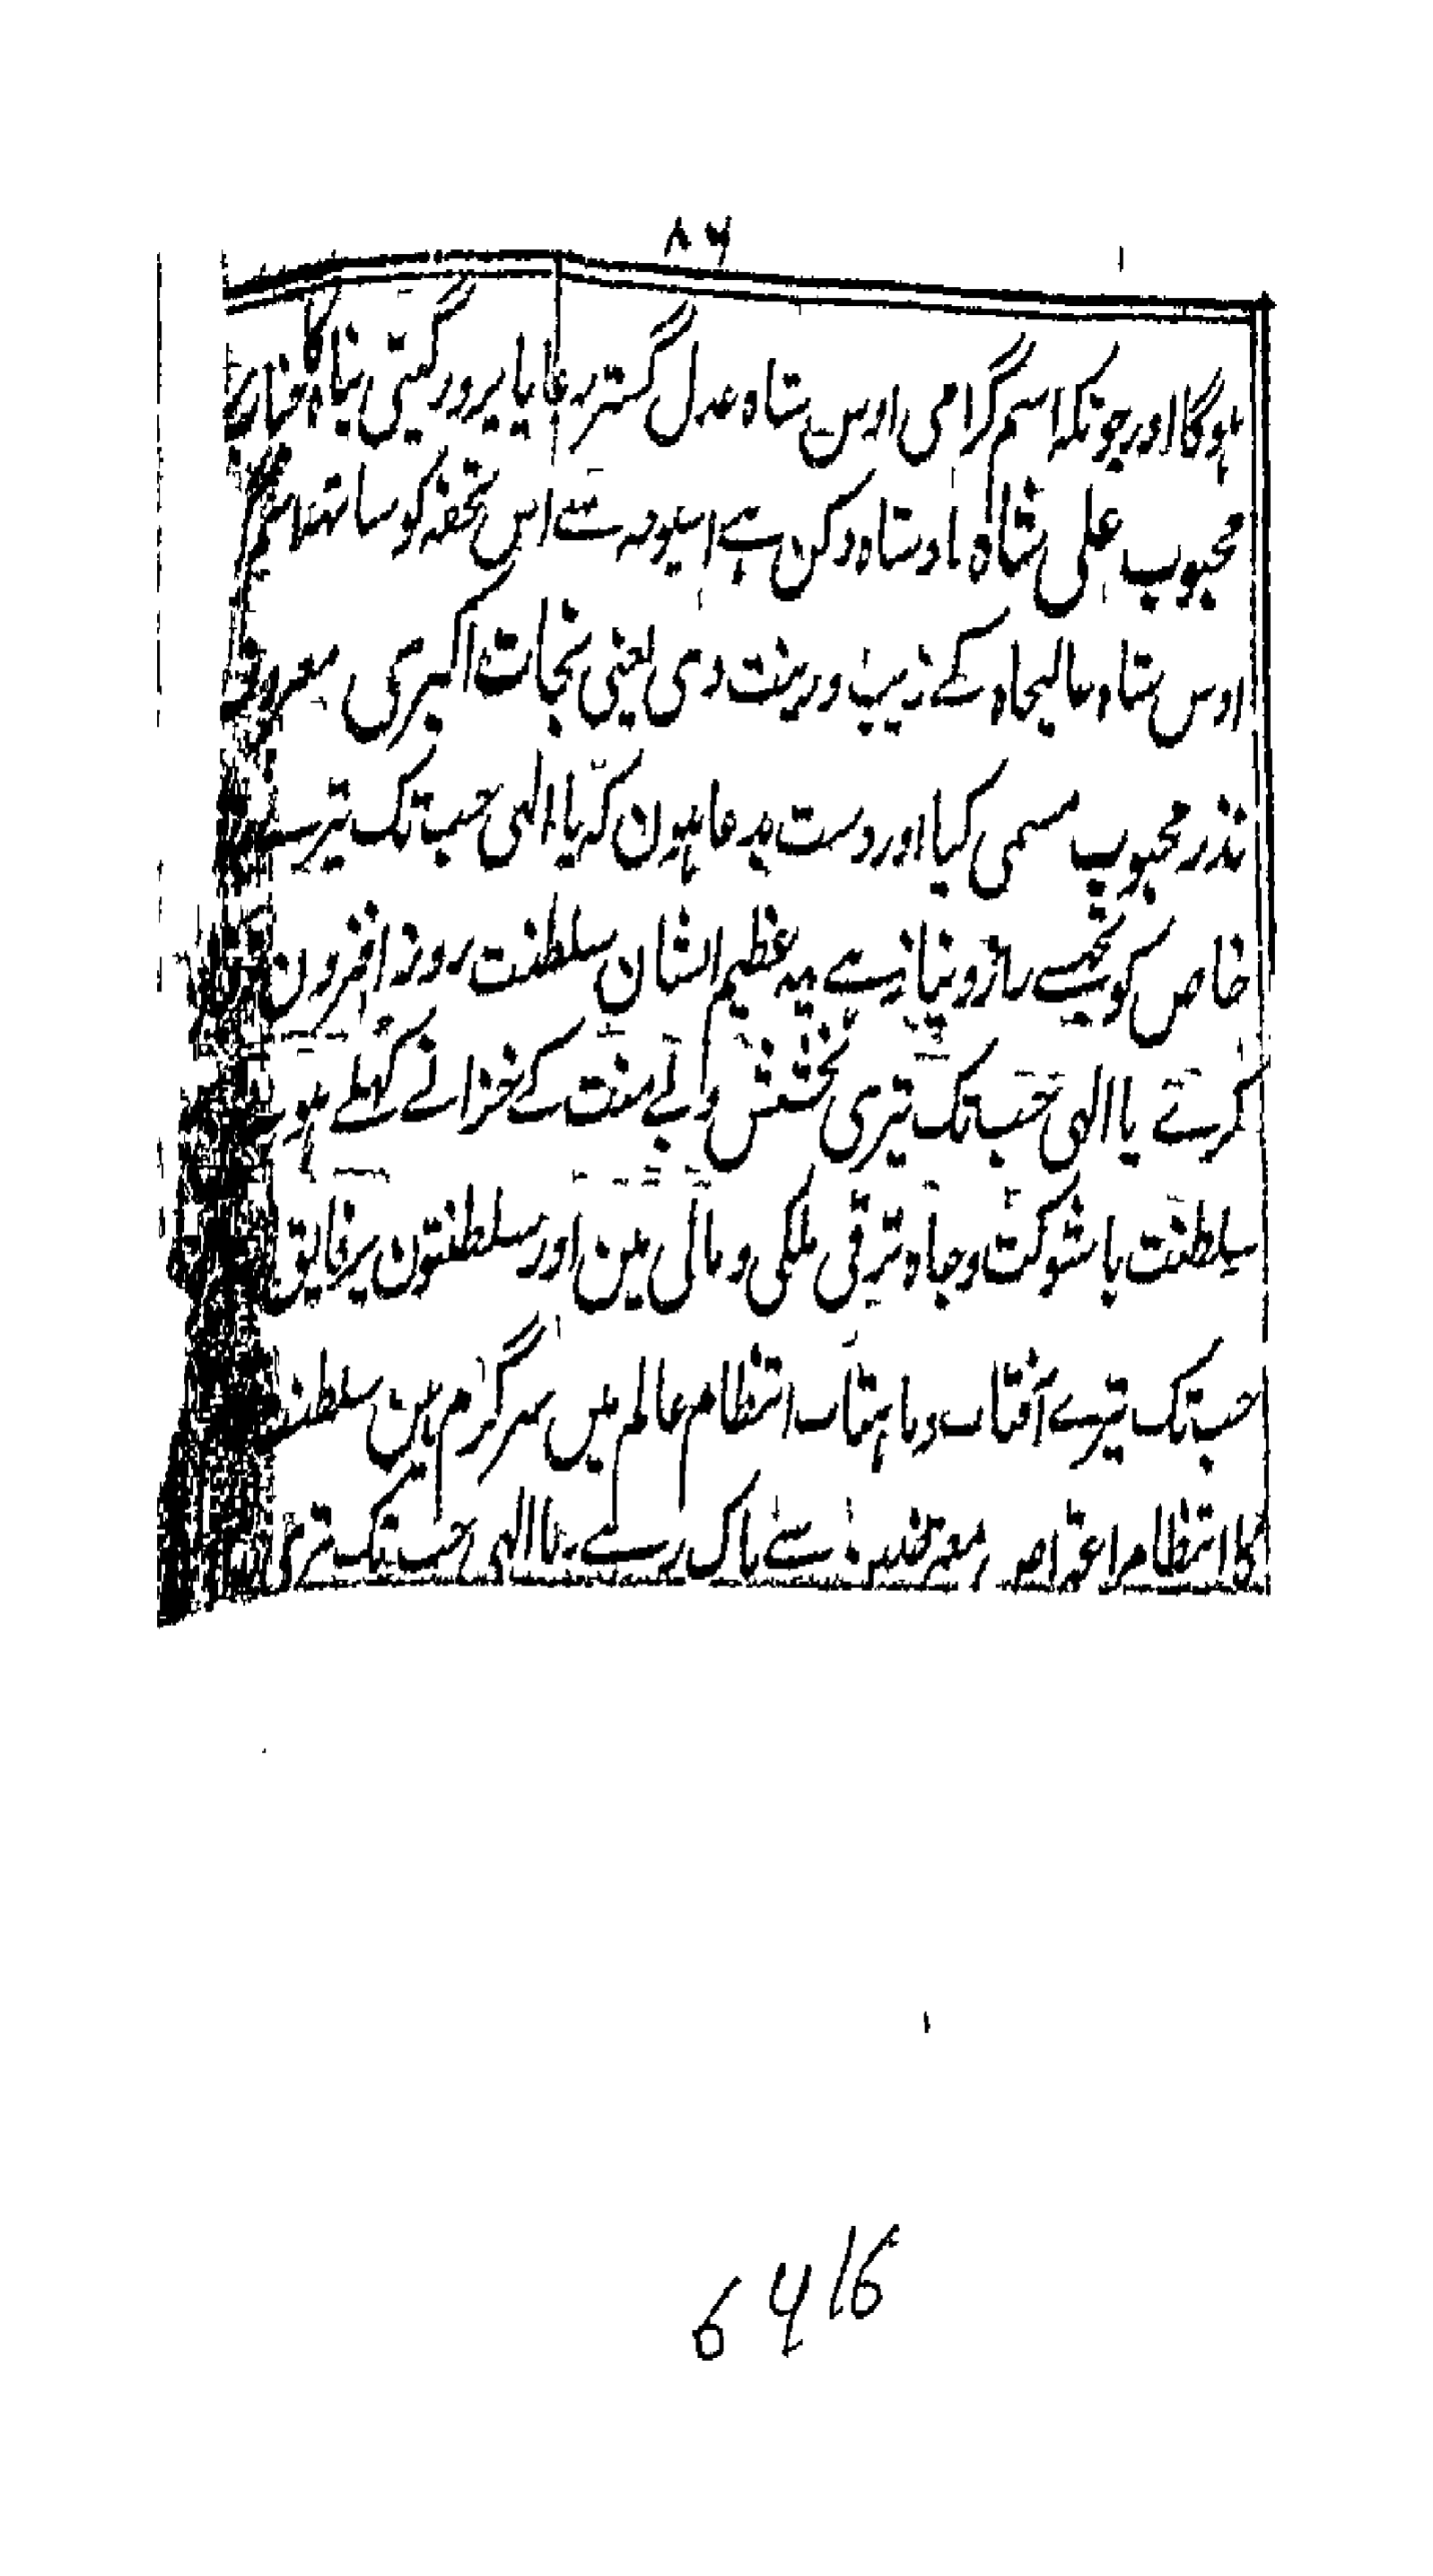 ۸۶
ہوگا اور چونکہ اسم گرامی اوس شاہ عدل گستر رعایا پرور گیتی پناہ کا جناب
محبوب علی شاہ بادشاہ دکن ہے اسیوجہ سے اس تحفہ کو ساتھ اسم
اوس شاہ عالیجاہ کے زیب و زینت دی یعنی نجات اکبری معروف
نذر محبوب مسمی کیا اور دست بدعا ہون کہ یا الہی جب تک تیرے
خاص کو تجھسے راز و نیاز رہے یہ عظیم الشان سلطنت روز افزون
کرے یا الہی جب تک تیری بخشش و بے منت کے خزانے کھلے ہوے
سلطنت با شوکت و جاہ ترقی ملکی و مالی مین اور سلطنتون پر فایق
جب تک تیرے آفتاب و ماہتاب انتظام عالم میں سرگرم ہین سلطنت
کا انتظام اعتراض معترضین سے پاک رہے یا الہی جب تک تیری
6416